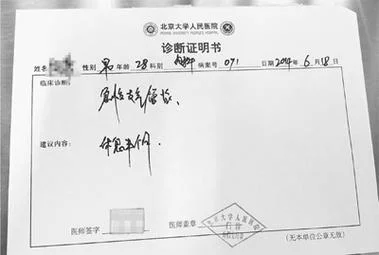 北京大学人民医院
PEKING UNIVERSITY PEOPLE'S HOSPITAL
诊断证明书
姓名 性别 男 年龄 28 科别 内科 病案号 071 日期 2014 年 6 月 18 日
临床诊断:
急性支气管炎、
建议内容:
休息半月.
医师签字
医师盖章
北京大学人民医院
(无本单位公章无效)